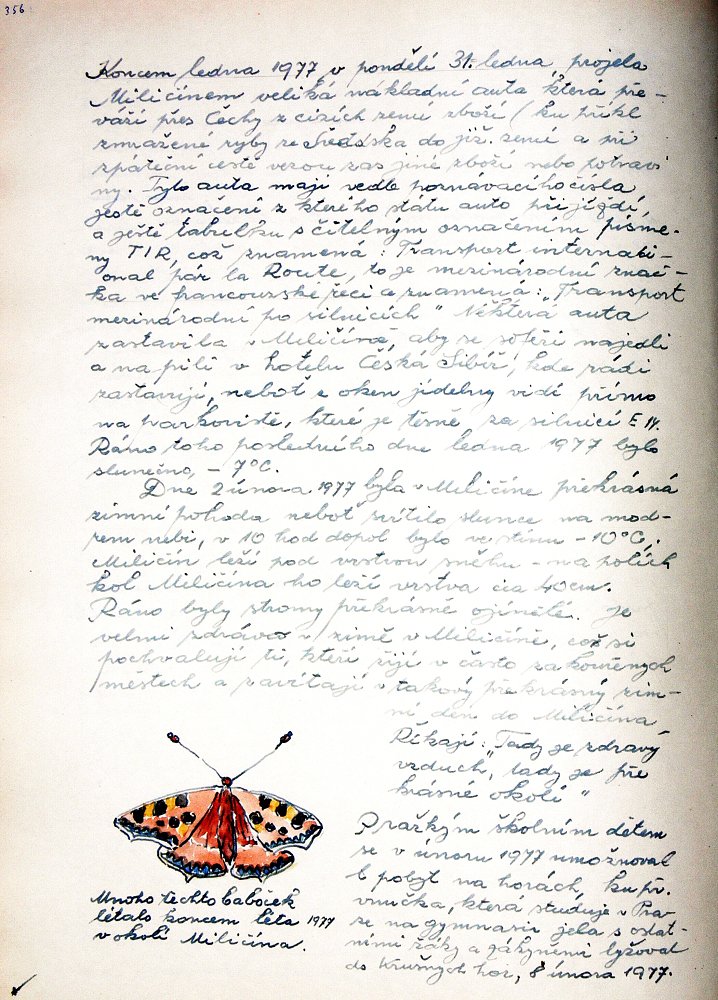 356
Koncem ledna 1977, v pondělí 31. ledna, projela
Miličínem veliká nákladní auta, která pře-
váží přes Čechy z cizích zemí zboží (ku příkl
zmražené ryby ze Švédska do již. zemí a při
zpáteční cestě vezou zas jiné zboží nebo potravi
ny. Tyto auta mají vedle poznávacího čísla
ještě označení z kterého státu auto přijíždí,
a ještě tabulku s čitelným označením písme-
ny TIR, což znamená: Transport internati-
onal pár la Route, to je mezinárodní znač-
ka ve francouzské řeči a znamená: „Transport
mezinárodní po silnicích" Některá auta
zastavila v Miličíně, aby se šoféři najedli
a napili v hotelu Česká Sibiř, kde rádi
zastavují, neboť z oken jídelny vidí přímo
na parkoviště, které je těsně za silnicí E 14.
Ráno toho posledního dne ledna 1977 bylo
slunečno, - 7°C.
Dne 2 února 1977 byla v Miličíne překrásná
zimní pohoda neboť svítilo slunce na mod-
rem nebi, v 10 hod dopol bylo ve stínu - 10°C.
Miličín leží pod vrstvou sněhu - na polích
kol Miličína ho leží vrstva cia 40cm.
Ráno byly stromy překrásné ojínělé. Je
velmi zdrávo v zimě v Miličíně, což si
pochvalují ti, kteří žijí v často zakouřených
městech a zavítají v takový překrásný zim-
ní den do Miličína
Říkají: „Tady je zdravý
vzduch, tady je pře
krásné okolí"
Pražkým školním dětem
se v únoru 1977 umožňoval
pobyt na horách, ku př.
vnučka, která studuje v Pra-
ze na gymnasiu jela s ostat-
ními žáky a žákyněmi lyžovat
do Krušných hor, 8 února 1977.
Mnoho těchto baboček
létalo koncem léta 1977
v okolí Miličína.